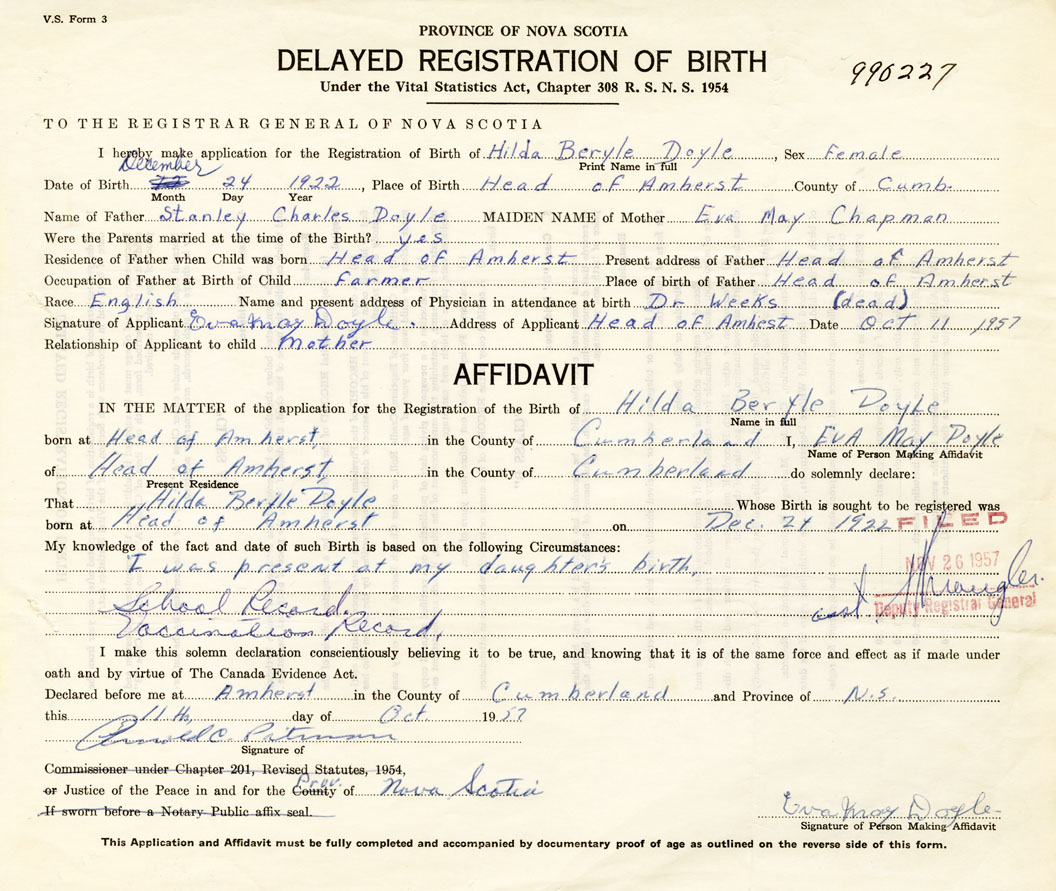 V.S. Form 3
PROVINCE OF NOVA SCOTIA
DELAYED REGISTRATION OF BIRTH
990227
Under the Vital Statistics Act, Chapter 308 R. S. N. S. 1954
TO THE REGISTRAR GENERAL OF NOVA SCOTIA
I hereby make application for the Registration of Birth of Hilda Beryle Doyle, Sex Female
Print Name in full
December
Date of Birth 24 1922, Place of Birth Head of Amherst County of Cumb.
Month Day Year
Name of Father Stanley Charles Doyle MAIDEN NAME of Mother Eva May Chapman
Were the Parents married at the time of the Birth? yes
Residence of Father when Child was born Head of Amherst Present address of Father Head of Amherst
Occupation of Father at Birth of Child Farmer Place of birth of Father Head of Amherst
Race English Name and present address of Physician in attendance at birth Dr Weeks (dead)
Signature of Applicant Eva May Doyle. Address of Applicant Head of Amhest Date Oct 11, 1957
Relationship of Applicant to child Mother
AFFIDAVIT
IN THE MATTER of the application for the Registration of the Birth of Hilda Beryle Doyle
Name in full
born at Head of Amherst, in the County of Cumberland I, EvA May Doyle
Name of Person Making Affidavit
of Head of Amherst, in the County of Cumberland do solemnly declare:
Present Residence
That Hilda Beryle Doyle Whose Birth is sought to be registered was
born at Head of Amherst on Dec. 24 1922
FILED
My knowledge of the fact and date of such Birth is based on the following Circumstances:
I was present at my daughter's birth,
NOV 26 1957
School Record.
Deputy Registrar General
Vaccination Record,
I make this solemn declaration conscientiously believing it to be true, and knowing that it is of the same force and effect as if made under
oath and by virtue of The Canada Evidence Act.
Declared before me at Amherst in the County of Cumberland and Province of N.S.
this 11th, day of Oct. 1957
Arnold C Pitman
Signature of
Commissioner under Chapter 201, Revised Statutes, 1954,
Prov.
or Justice of the Peace in and for the County of Nova Scotia
If sworn before a Notary Public affix seal.
Eva May Doyle
Signature of Person Making Affidavit
This Application and Affidavit must be fully completed and accompanied by documentary proof of age as outlined on the reverse side of this form.